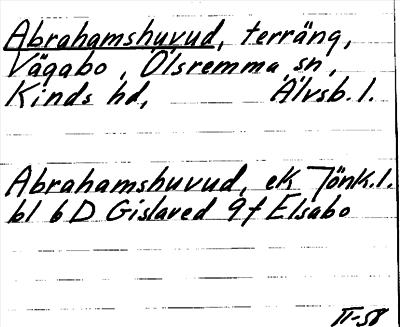 Abrahamshuvud, terräng,
Vägabo, Ölsremma sn,
Kinds hd, Älvsb. l.
Abrahamshuvud, ek Jönk. l.
bl 6 D Gislaved 9 f Elsabo
II-58